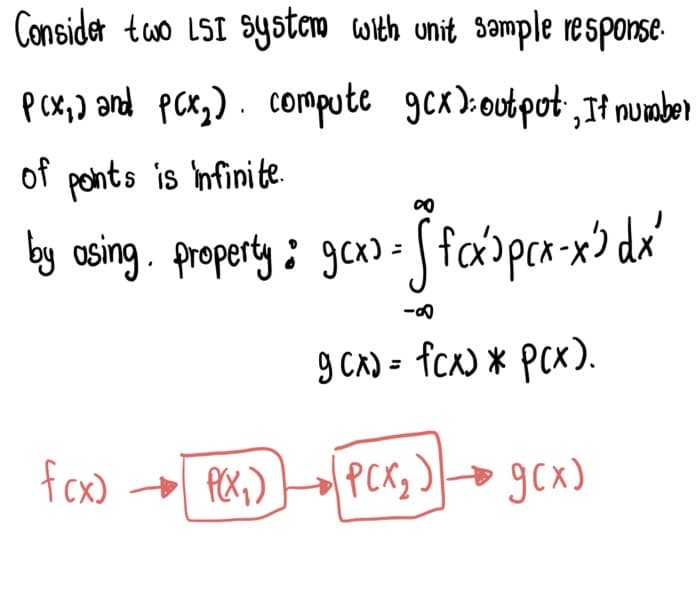 Consider two LSI system with unit sample response.
p(x₁) and p(x₂). compute g(x):output, If number
of points is infinite.
by using. property : g(x) = ∫_{-∞}^{∞} f(x')p(x-x') dx'
g(x) = f(x) * p(x).
f(x) → P(x₁) → P(x₂) → g(x)